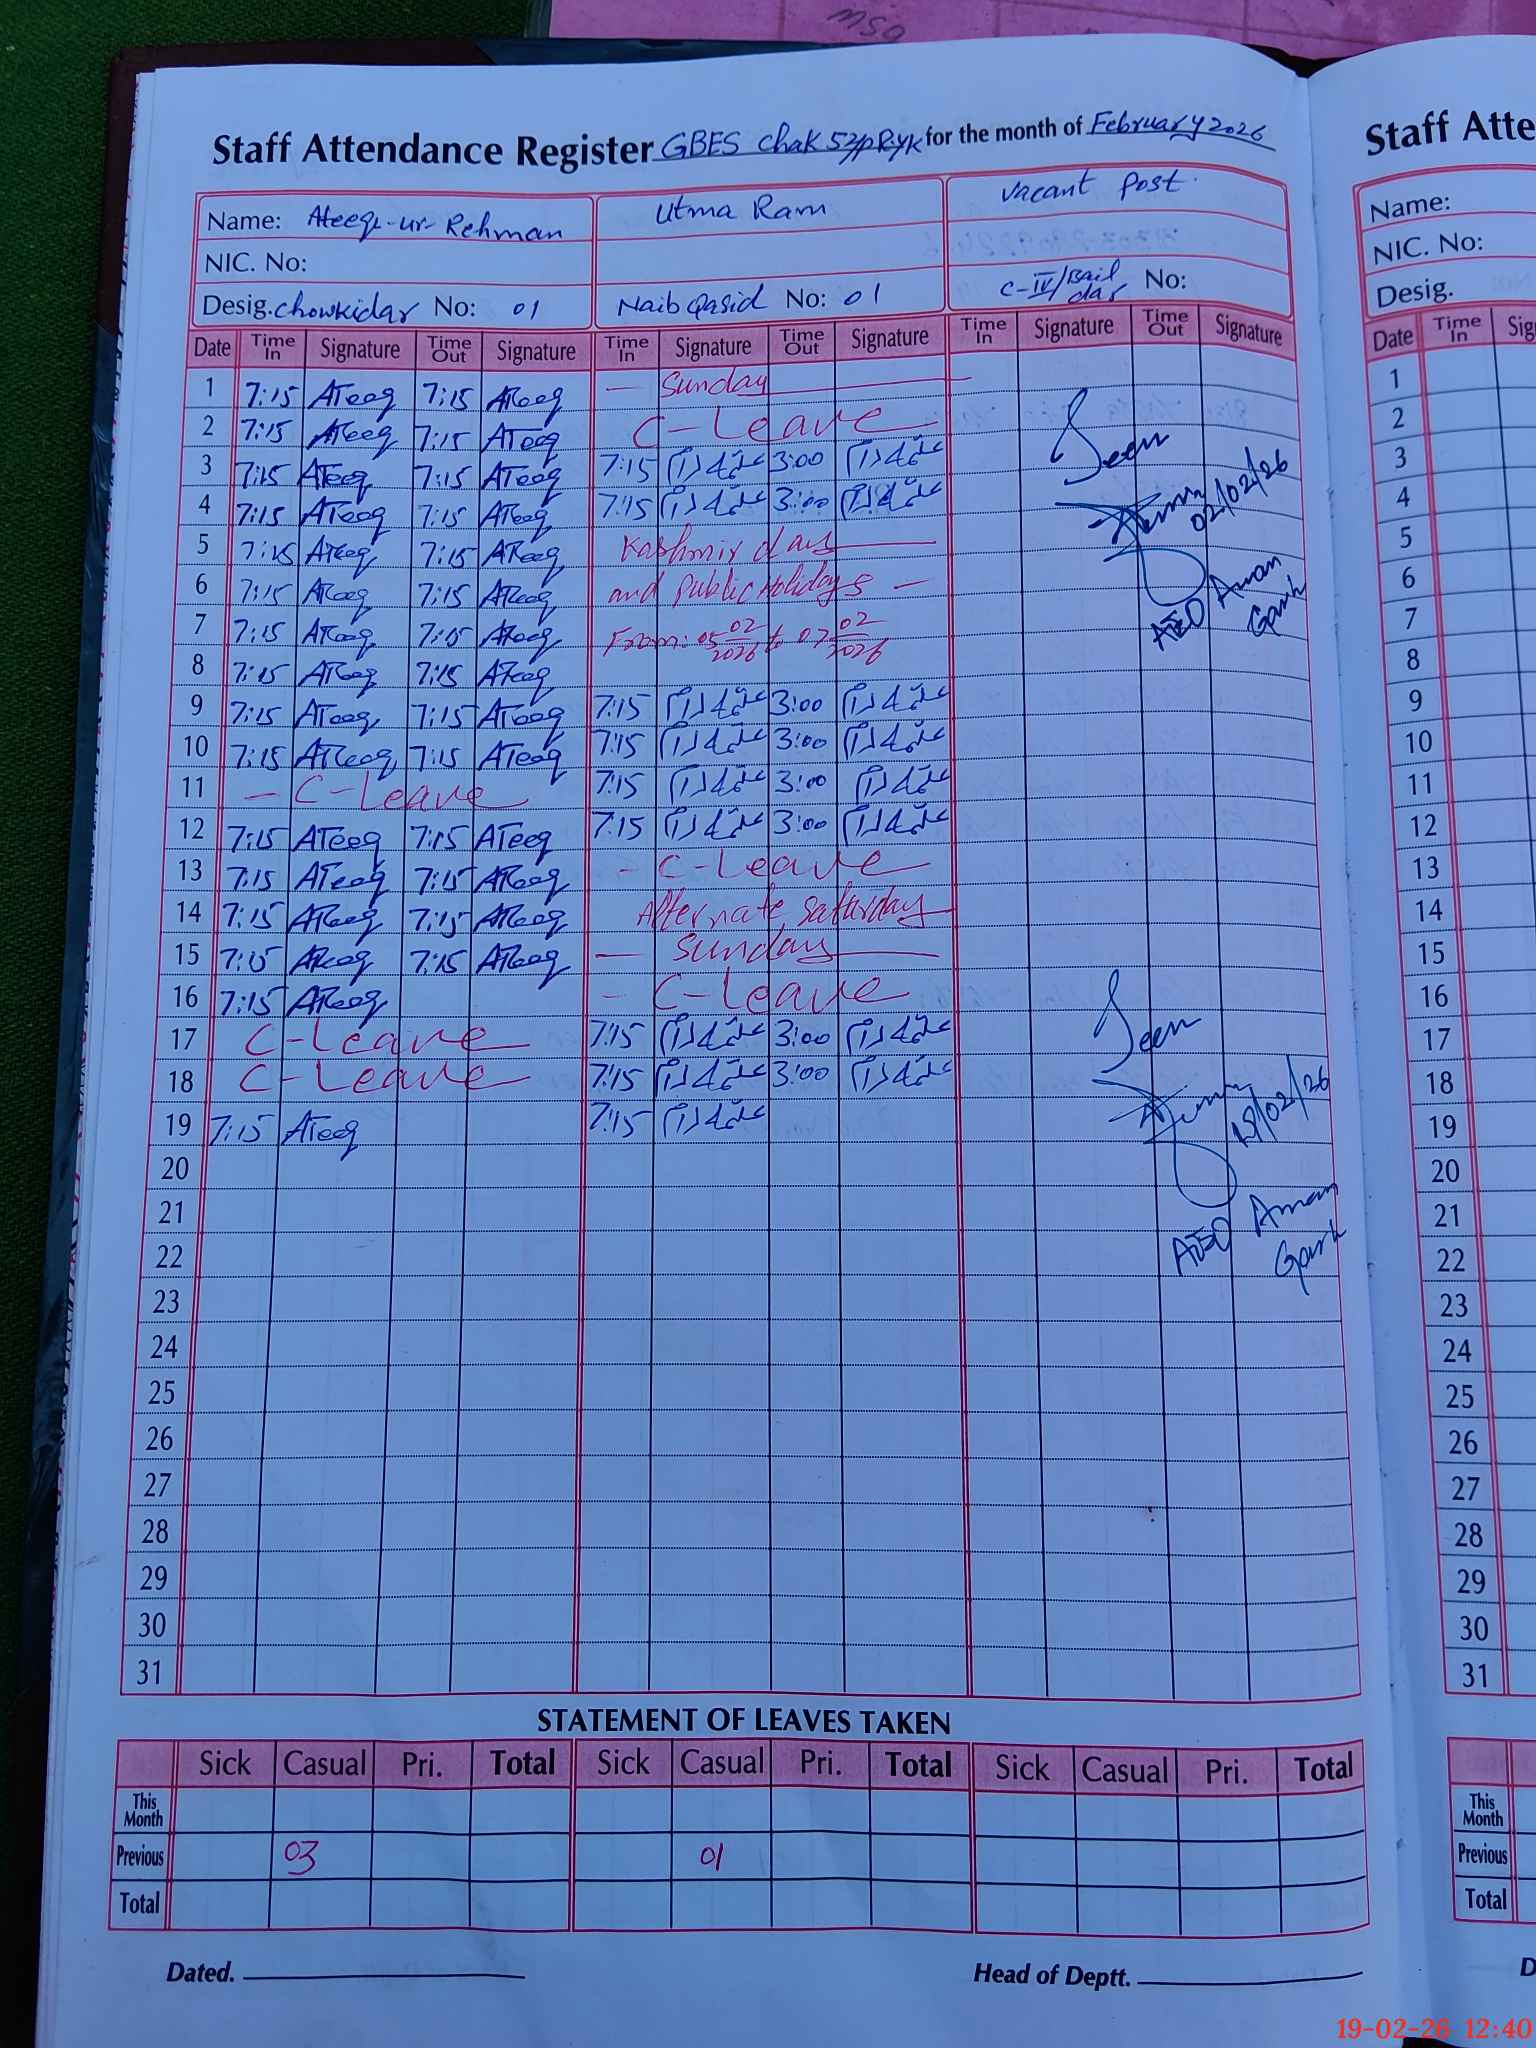 MSO
Staff Attendance Register GBES Chak 52/P Ryk for the month of February 2026
Name: Ateeq-ur-Rehman Utma Ram Vacant Post.
NIC. No:
Desig. Chowkidar No: 01 Naib Qasid No: 01 C-IV/Baildar No:
Date Time In Signature Time Out Signature Time In Signature Time Out Signature Time In Signature Time Out Signature
1 7:15 ATeeq 7:15 ATeeq — Sunday —
2 7:15 ATeeq 7:15 ATeeq C-Leave
3 7:15 ATeeq 7:15 ATeeq 7:15 3:00 Seen
4 7:15 ATeeq 7:15 ATeeq 7:15 3:00 02/02/26
5 7:15 ATeeq 7:15 ATeeq Kashmir day —
6 7:15 ATeeq 7:15 ATeeq and Public Holidays — AEO Aman Garh
7 7:15 ATeeq 7:15 ATeeq From: 05 02/2026 to 07 02/2026
8 7:15 ATeeq 7:15 ATeeq
9 7:15 ATeeq 7:15 ATeeq 7:15 3:00
10 7:15 ATeeq 7:15 ATeeq 7:15 3:00
11 — C-Leave 7:15 3:00
12 7:15 ATeeq 7:15 ATeeq 7:15 3:00
13 7:15 ATeeq 7:15 ATeeq - C-Leave
14 7:15 ATeeq 7:15 ATeeq Alternate Saturday
15 7:15 ATeeq 7:15 ATeeq — Sunday —
16 7:15 ATeeq - C-Leave
17 C-Leave 7:15 3:00 Seen
18 C-Leave 7:15 3:00
19 7:15 ATeeq 7:15 18/02/26
20
21 AEO Aman Garh
22
23
24
25
26
27
28
29
30
31
STATEMENT OF LEAVES TAKEN
Sick Casual Pri. Total Sick Casual Pri. Total Sick Casual Pri. Total
This Month
Previous 03 01
Total
Dated. Head of Deptt.
Staff Atte
Name:
NIC. No:
Desig.
Date Time In Sig
1
2
3
4
5
6
7
8
9
10
11
12
13
14
15
16
17
18
19
20
21
22
23
24
25
26
27
28
29
30
31
This Month
Previous
Total
D
19-02-26 12:40